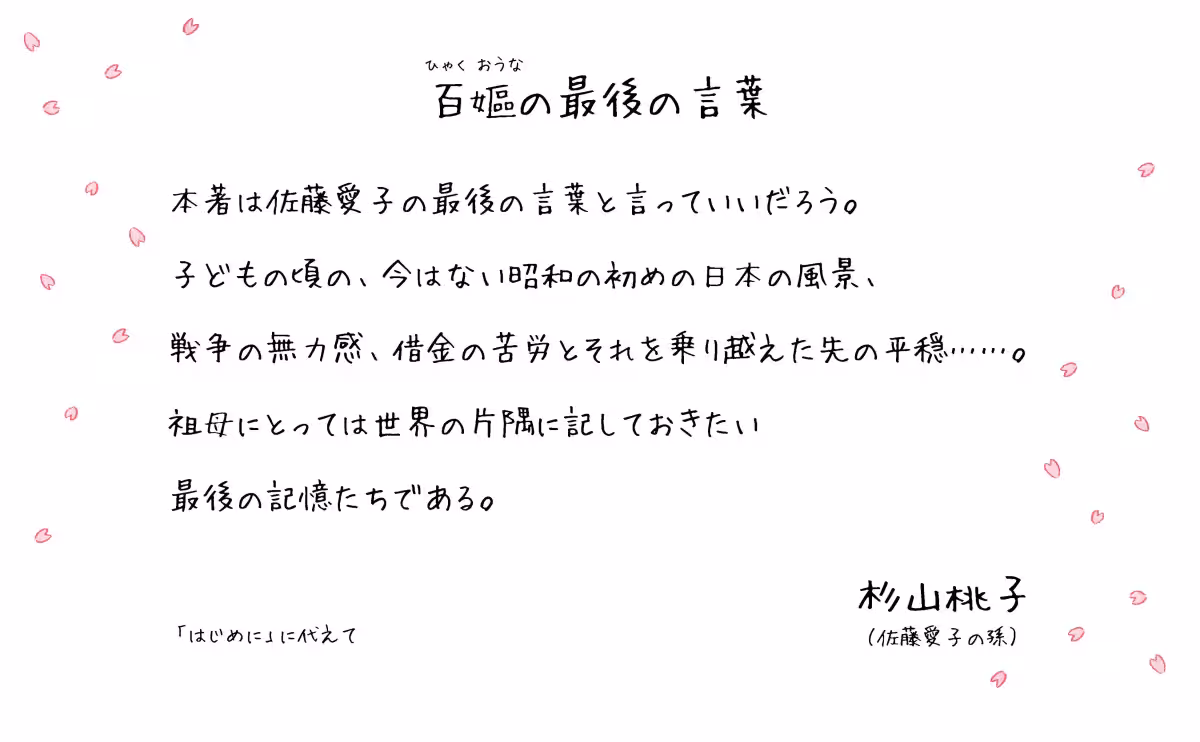 ひゃく おうな
百嫗の最後の言葉
本著は佐藤愛子の最後の言葉と言っていいだろう。
子どもの頃の、今はない昭和の初めの日本の風景、
戦争の無力感、借金の苦労とそれを乗り越えた先の平穏……。
祖母にとっては世界の片隅に記しておきたい
最後の記憶たちである。
杉山桃子
「はじめに」に代えて
（佐藤愛子の孫）